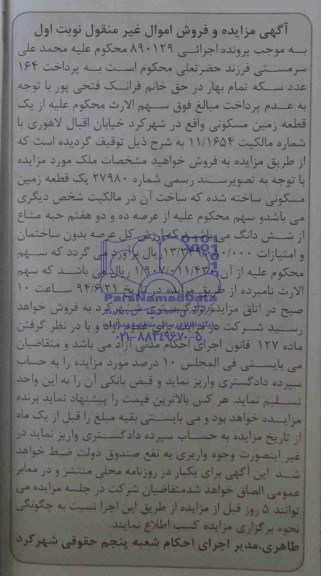 آگهی مزایده و فروش اموال غیر منقول نوبت اول
به موجب پرونده اجرائی ۸۹۰۱۲۹ محکوم علیه محمد علی
سرمستی فرزند حضرتعلی محکوم است به پرداخت ۱۶۴
عدد سکه تمام بهار در حق خانم فرانک فتحی پور با توجه
به عدم پرداخت مبالغ فوق سهم الارث محکوم علیه از یک
قطعه زمین مسکونی واقع در شهرکرد خیابان اقبال لاهوری با
شماره مالکیت ۱۱/۱۶۵۴ به شرح ذیل توقیف گردیده است که
از طریق مزایده به فروش خواهد مشخصات ملک مورد مزایده
با توجه به تصویر سند رسمی شماره ۲۷۹۸۰ یک قطعه زمین
مسکونی ساخته شده که ساخت آن در مالکیت شخص دیگری
می باشد و سهم محکوم علیه از عرصه ده و دو هفتم حبه مشاع
از شش دانگ می باشد که ارزش کل عرصه بدون ساختمان
و امتیازات ریال برآورد می گردد که سهم
محکوم علیه از آن ریال می باشد که سهم
الارث نامبرده از طریق مزایده در تاریخ ۹۴/۶/۳۱ ساعت ۱۰
صبح در اتاق مزایده دادگستری شهرکرد به فروش خواهد
رسید شرکت و با در نظر گرفتن
ماده ۱۲۷ قانون اجرای احکام مدنی آزاد می باشد و متقاضیان
می بایستی فی المجلس ۱۰ درصد مورد مزایده را به حساب
سپرده دادگستری واریز نماید و قبض بانکی آن را به این واحد
تسلیم نماید هر کس بالاترین قیمت را پیشنهاد نماید برنده
مزایده خواهد بود و می بایستی بقیه مبلغ را قبل از یک ماه
از تاریخ مزایده به حساب سپرده دادگستری واریز نماید در
غیر اینصورت وجوه واریزی به نفع صندوق دولت ضبط خواهد
شد این آگهی برای یکبار در روزنامه محلی منتشر و در معابر
عمومی الصاق خواهد شد متقاضیان شرکت در جلسه مزایده می
توانند ۵ روز قبل از مزایده از طریق این اجرا نسبت به چگونگی
نحوه برگزاری مزایده کسب اطلاع نمایند
طاهری، مدیر اجرای احکام شعبه پنجم حقوقی شهرکرد
ParsNamadData
۰۲۱-۸۸۳۴۹۶۷۰-۵